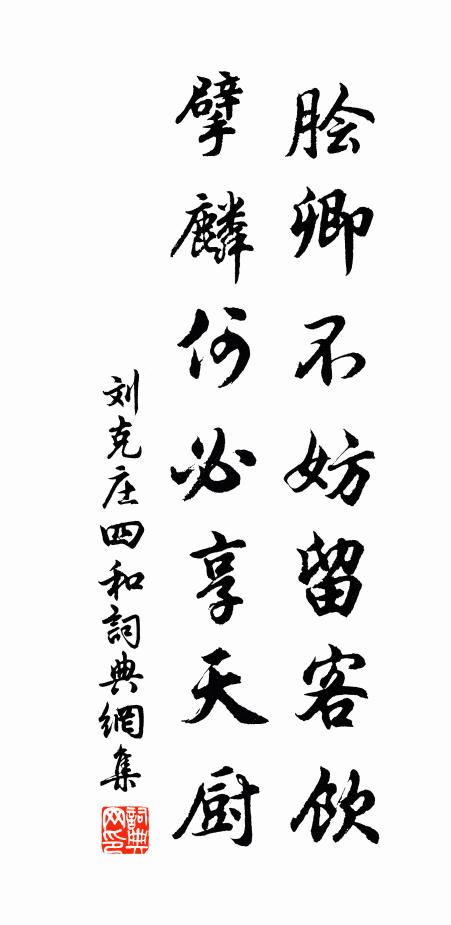 脍卿不妨留客飲
擘麟何必享天厨
刘克庄四和詞典網集
詞典网印